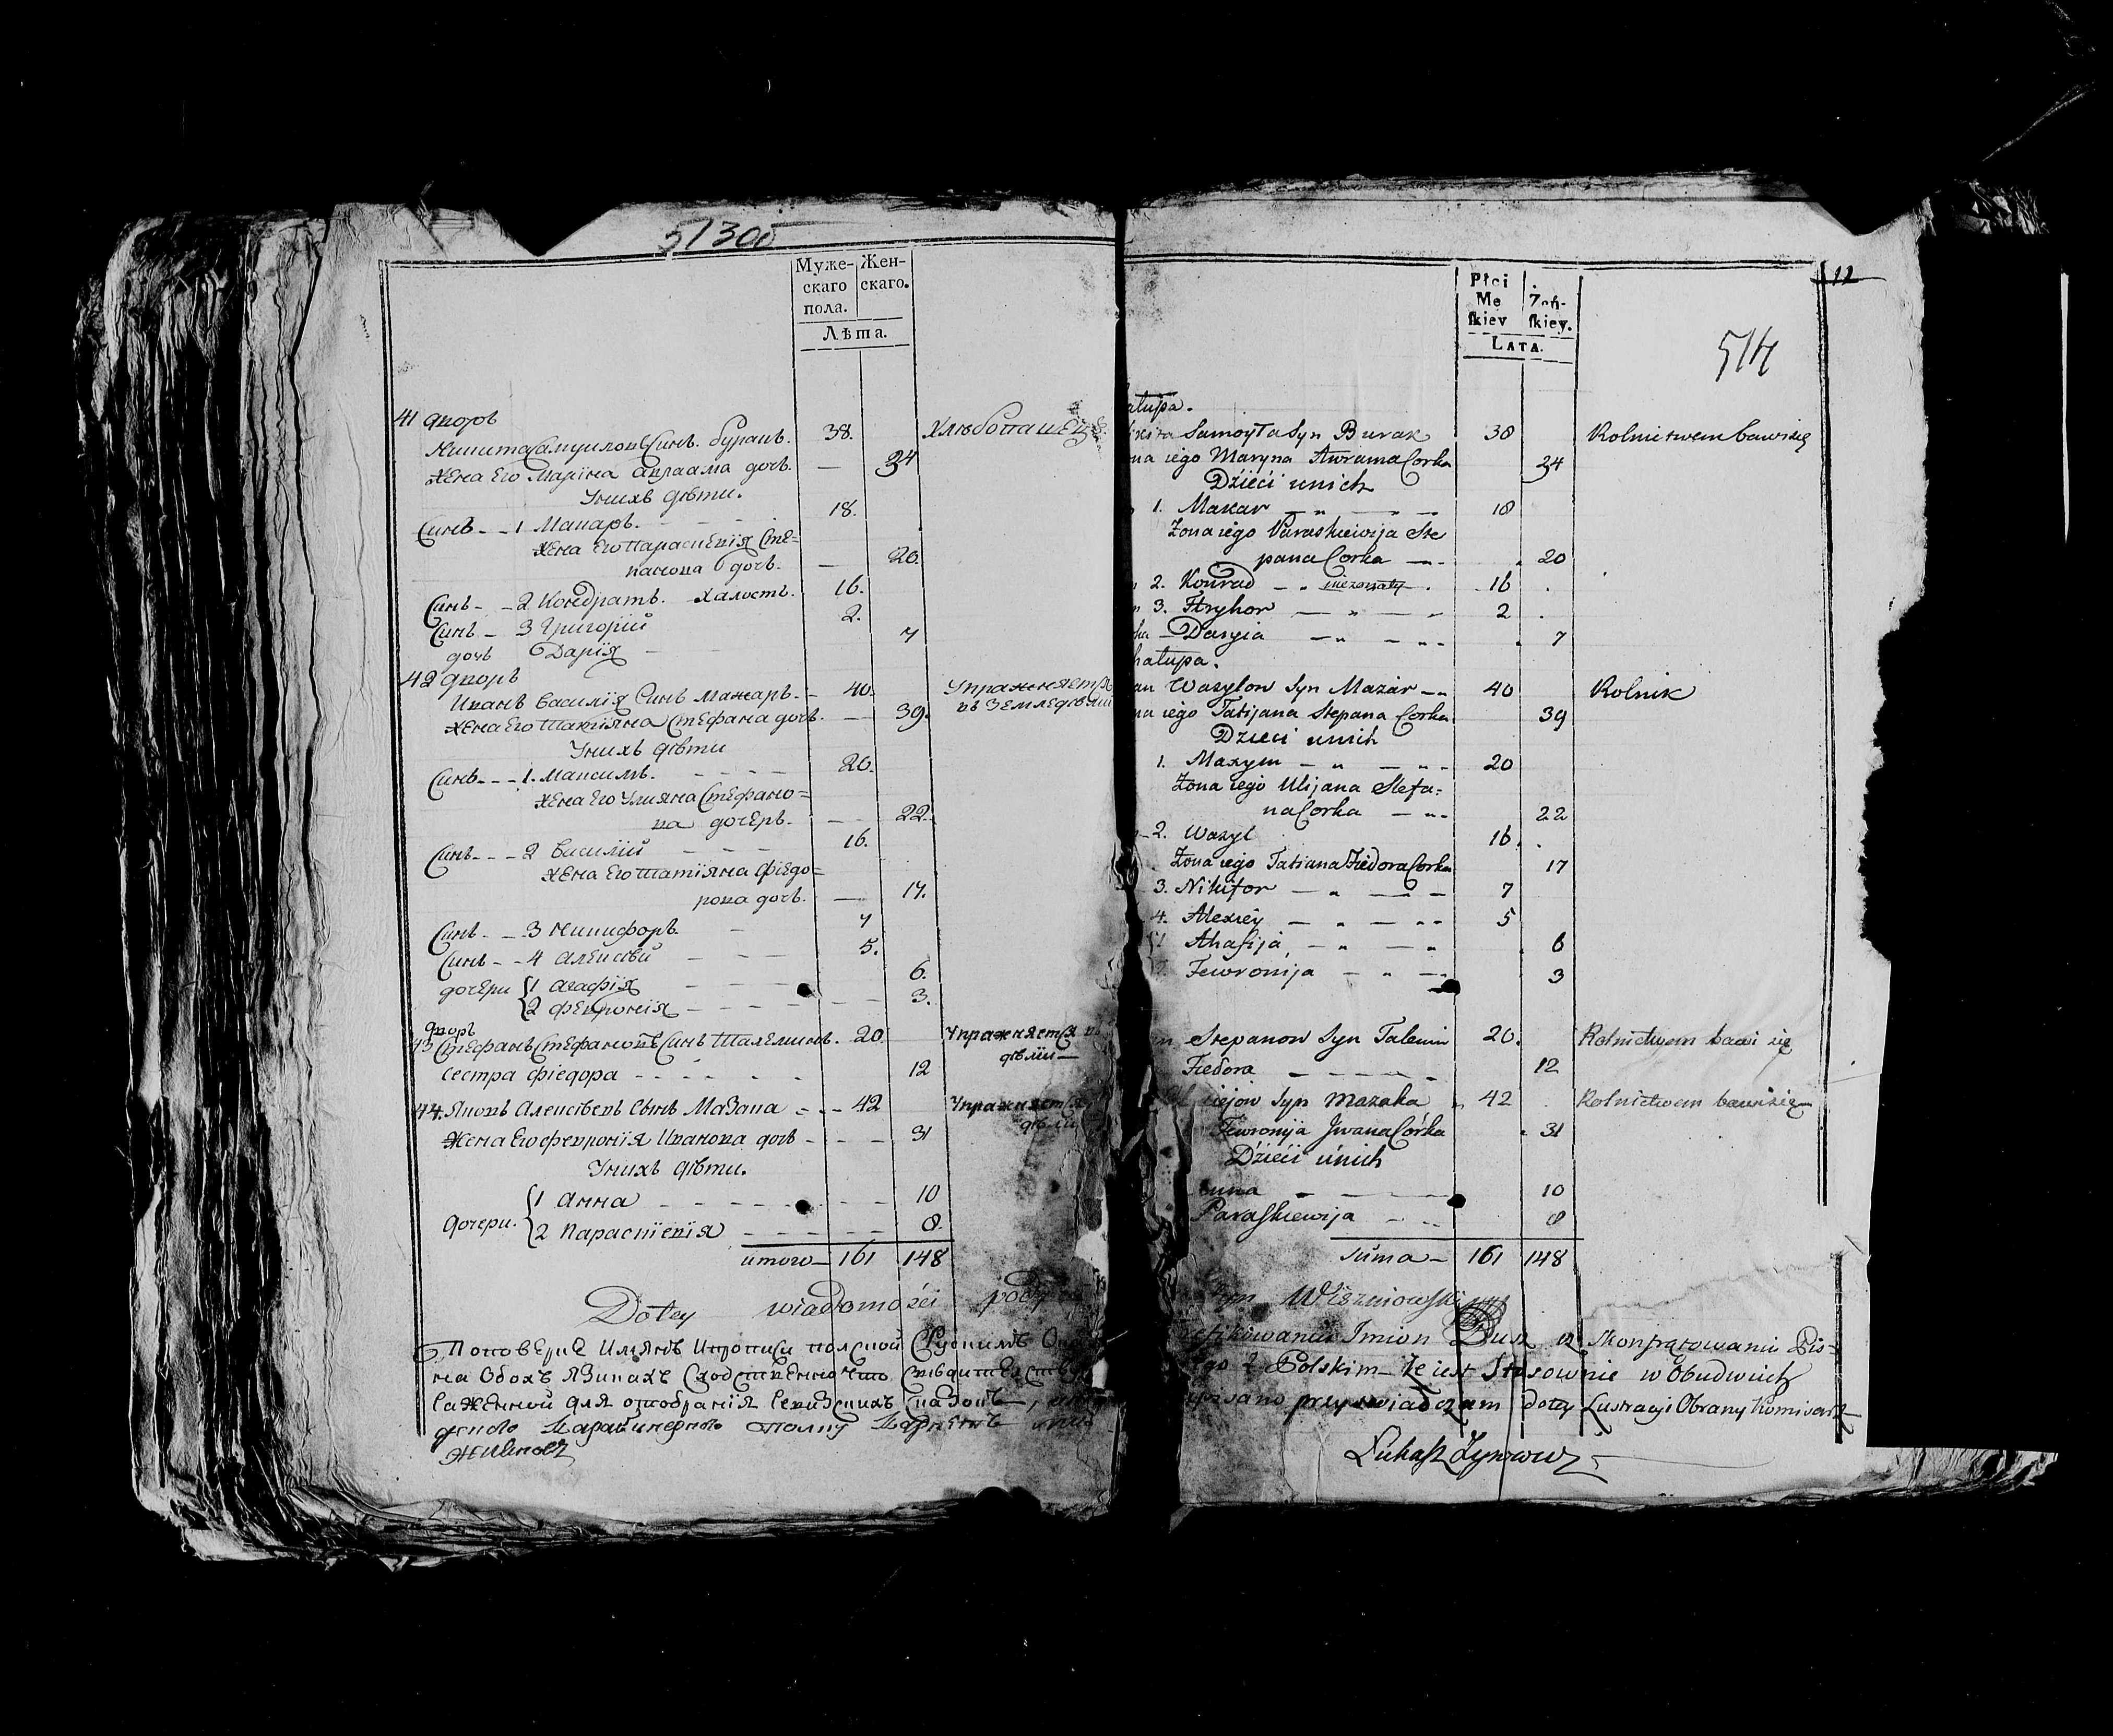 51300
Муже-
скаго
пола.
Жен-
скаго.
Лѣта.
41 дворъ
Никита Самуиловъ Синъ. буракъ. 38. хлѣбопашец
жена Его Марина авраама дочъ. — 34
Унихъ дѣти.
Синъ - - 1 Макаръ. 18.
жена Его параскевiя Сте=
панова дочъ. — 20.
Синъ - - 2 Кондратъ. халостъ. 16.
Синъ - 3 Григорiй 2.
дочъ Дарiя 7
42 дворъ
Иванъ Василiя Синъ мажаръ. - 40. Упражняется
въ земледѣлiи
жена Его татiяна стефана дочъ. — 39.
Унихъ дѣти
Синъ - - - 1. Максимъ. 20.
жена Его Улияна Стефано=
ва дочеръ. — 22.
Синъ - - - 2 Василiй 16.
жена Его татiяна фiедо=
рова дочъ. — 17.
Синъ - - 3 никифоръ. 7
Синъ - - 4 алексѣй 5.
дочери 1 агафiя 6.
2 февронiя 3.
дворъ
43 Стефанъ Стефановъ Синъ талеминъ. 20. Упражняется въ
дѣлiи
сестра фiедора - - - - - 12
44. Яковъ алексѣевъ Сынъ Мазака - - 42 Упражняется
дѣлiи
жена Его февронiя Иванова дочъ - - - 31
Унихъ дѣти.
дочери. 1 анна - - - - - 10
2 параскiевiя - - - - - 8.
итого — 161 148
Dotey wiadomości podpis
Поповерке Имянъ Ипрописи полской Срускимъ
на Обохъ язикахъ Сходственно что Свѣдителст
Саженной для отобранiя Ревизскихъ Сказокъ
Płci
Me
ſkiev
Zoń-
ſkiey.
LATA.
12
514
atupa.
ikita Samoyła Syn Burak 38 Rolnictwem bawi się
na iego Maryna Awrama Corka 34
Dzieci unich
1. Makar — " — " — 18
Zona iego Paraskiewija Ste
pana Corka — " - 20
2. Konrad - " niezonaty. 16
3. Hryhor — " — " 2
ka — Daryia — " — " - 7
hatupa.
an Wasylow Syn Mazar — " 40 Rolnik
na iego Tatijana Stepana Corka 39
Dzieci unich
1. Maxym — " — " - 20
Zona iego Ulijana Stefa=
na Corka — " - 22
2. Wasyl 16.
Zona iego Tatiana Fiedora Corka 17
3. Nikifor — " — — 7
4. Alexiey — " — " - 5
1 Ahafija — " — " 6
2. Fewronija — " — " 3
n Stepanow Syn Talemin 20. Rolnictwem bawi się
Fiedora — — — — — 12
iejow Syn Mazaka 42 Rolnictwem bawi się
Fewronija Jwana Córka 31
Dzieci unich
nna — — — — 10
Paraſkiewija — " 8
Suma — 161 148
Wiszniowski
Imion Dusz z Skonfrątowaniu Pis=
ego z Polskim — Że iest Stosownie w Obudwuch
pisano przyswiadczam dotey Lustracyi Obrany Komisarz
Łukaſz Żynowicz